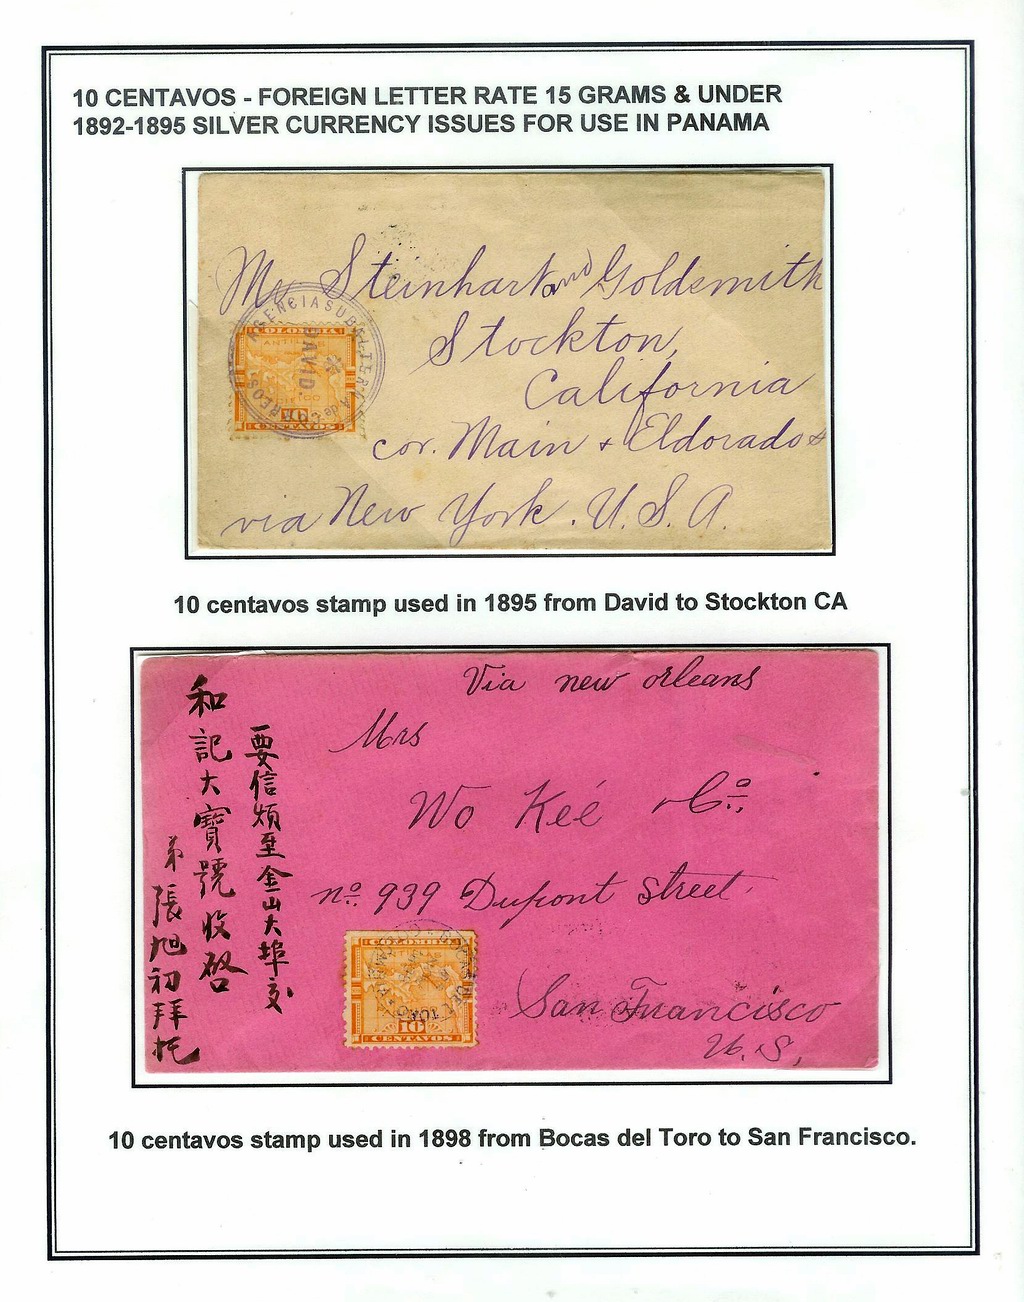 10 CENTAVOS - FOREIGN LETTER RATE 15 GRAMS & UNDER
1892-1895 SILVER CURRENCY ISSUES FOR USE IN PANAMA
Steinhart and Goldsmith
Stockton,
California
cor. Main + Eldorado
via New York. U. S. A.
AGENCIA SUBALTERNA de CORREOS
DAVID.
COLOMBIA
10
CENTAVOS
10 centavos stamp used in 1895 from David to Stockton CA
Via new orleans
Mrs
Wo Keé & Co.
no. 939 Dupont Street.
San Francisco
U. S,
要信煩至金山大埠交
和記大寶號收啓
弟張旭初拜托
COLOMBIA
10
CENTAVOS
10 centavos stamp used in 1898 from Bocas del Toro to San Francisco.